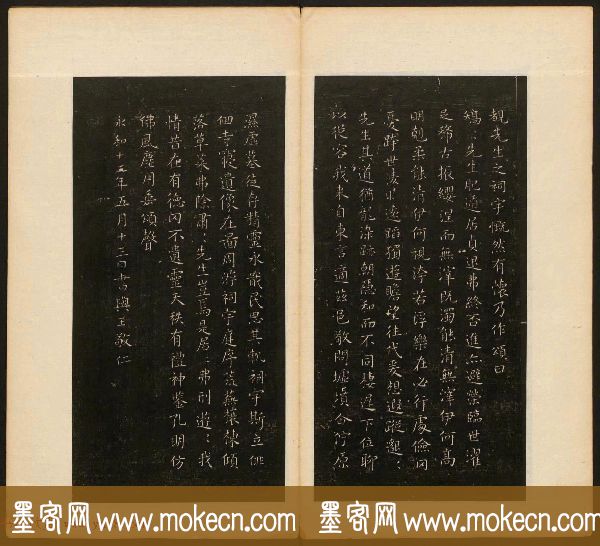 覩先生之祠宇慨然有懷乃作頌曰
矯〻先生肥遁居貞退弗終否進亦避榮臨世濯
足稀古振纓涅而無滓既濁能清無滓伊何高
明剋柔能清伊何視洿若浮樂在必行處儉罔
憂跨世凌時遠蹈獨遊瞻望往代爰想遐蹤邈〻
先生其道猶龍染跡朝隱和而不同棲遲下位聊
以從容我來自東言適茲邑敬問墟墳企佇原
隰墟墓徒存精靈永戢民思其軌祠宇斯立俳
佪寺寢遺像在圖周旋祠宇庭序荒蕪榱棟傾
落草萊弗除肅〻先生豈焉是居〻弗刑遊〻我
情昔在有德罔不遺靈天秩有禮神鑒孔明仿
佛風塵用垂頌聲
永和十二年五月十三日書與王敬仁
墨客网 www.mokecn.com 墨客网 www.mokecn.com